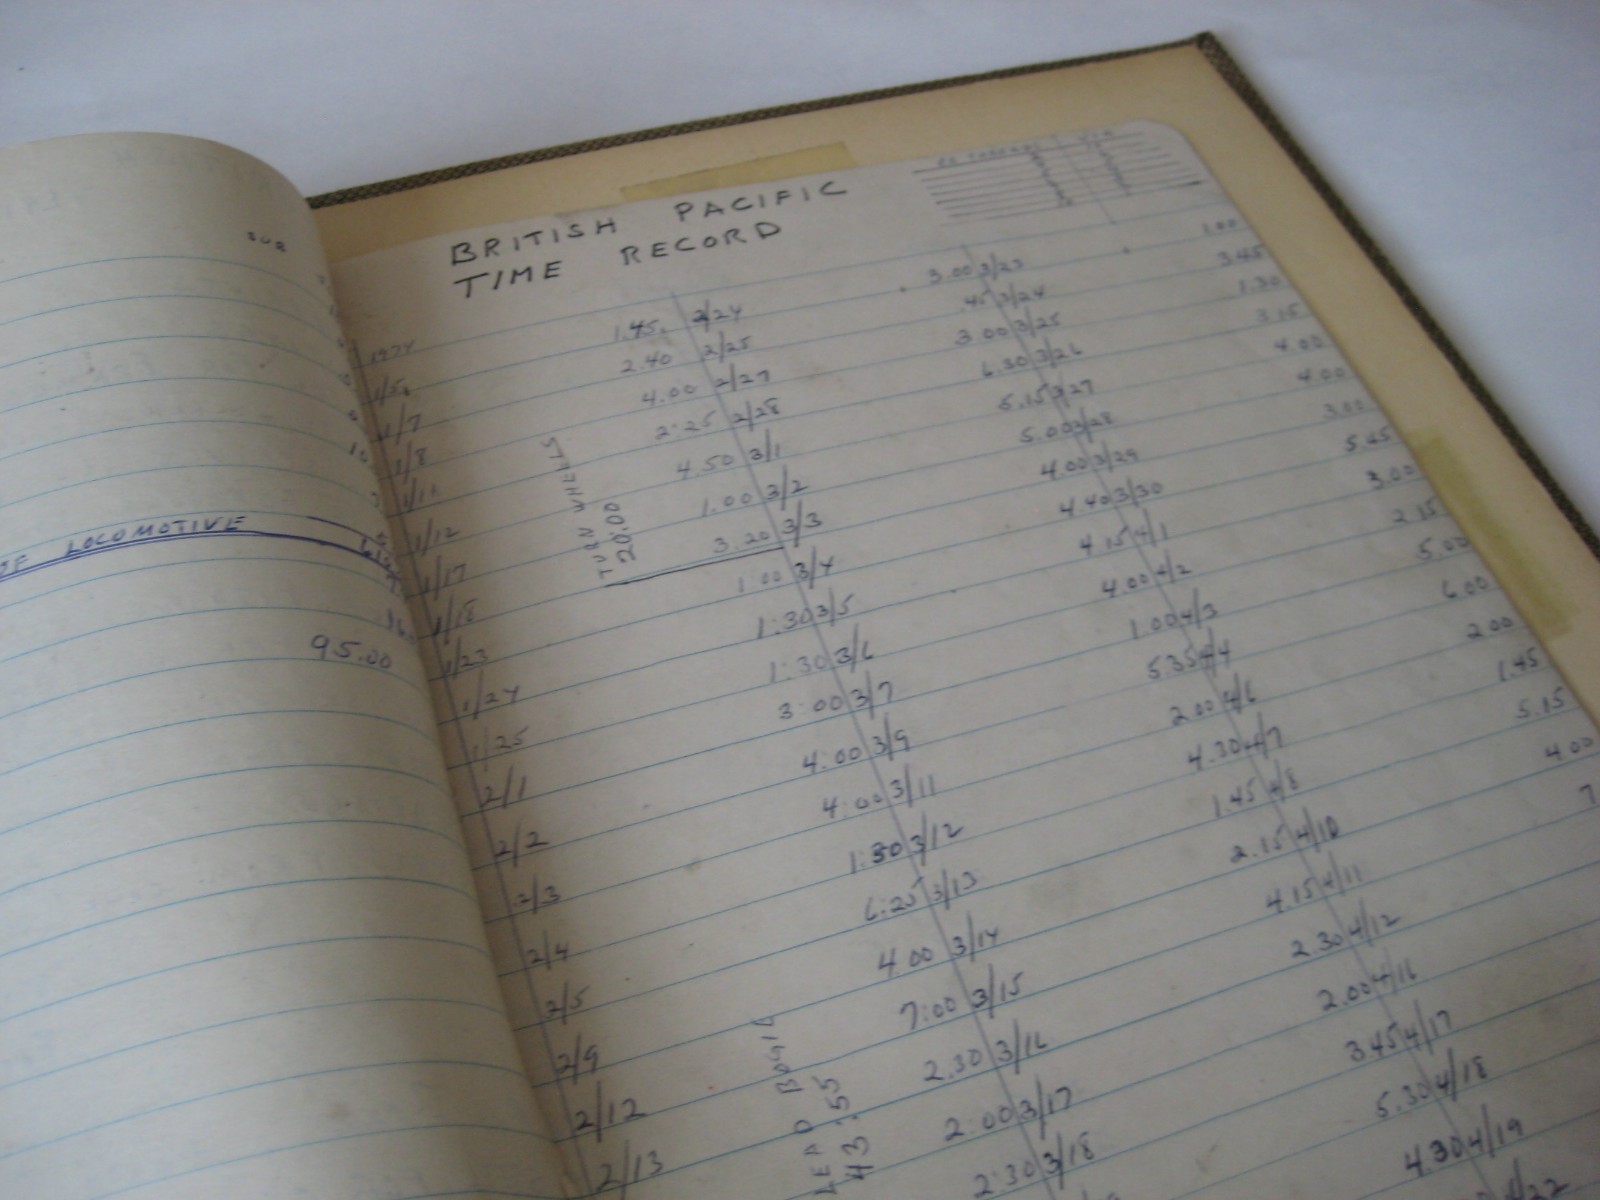 SUB
OF LOCOMOTIVE
95.00
BRITISH PACIFIC
TIME RECORD
1974
1/5 1.45 2/24 3.00 3/23 1.00
1/7 2.40 2/25 .45 3/24 3.45
1/8 4.00 2/27 3.00 3/25 1.30
1/11 2:25 2/28 6.30 3/26 3.15
1/12 4.50 3/1 5.15 3/27 4.00
1/17 1.00 3/2 5.00 3/28 4.00
1/18 3.20 3/3 4.00 3/29 3.00
TURN WHEELS
20:00
1/23 1:00 3/4 4.40 3/30 5.45
1/24 1:30 3/5 4.15 4/1 3.00
1/25 1:30 3/6 4.00 4/2 2.15
2/1 3:00 3/7 1.00 4/3 5.00
2/2 4:00 3/9 5.35 4/4 6.00
2/3 4:00 3/11 2.00 4/6 2.00
2/4 1:30 3/12 4.30 4/7 1.45
2/5 6:25 3/13 1.45 4/8 5.15
2/9 4.00 3/14 2.15 4/10 4.00
2/12 7:00 3/15 4.15 4/11 7
2/13 2.30 3/16 2.30 4/12
LEAD BOGIE
43:55
2:00 3/17 2.00 4/16
2:30 3/18 3.45 4/17
5.30 4/18
4.30 4/19
4/22